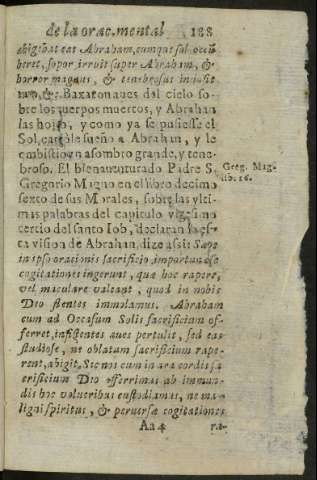 de la orac. mental 188
abigebat eas Abraham, cumque sol occũ
beret, sopor irruit super Abraham, &
horror magnus, & tenebrosus inuasit
eum, &c. Baxaron aues del cielo so-
bre los cuerpos muertos, y Abrahan
las hojeò, y como ya se pusiesse el
Sol, cayòle sueño a Abrahan, y le
embistiò vn asombro grande, y tene-
broso. El bienauenturado Padre S.
Gregorio Magno en el libro decimo
sexto de sus Morales, sobre las vlti-
mas palabras del capitulo vigesimo
tercio del santo Iob, declarando es-
ta vision de Abrahan, dize assi: Sæpe
in ipso orationis sacrificio, importunæ se
cogitationes ingerunt, quæ hoc rapere,
vel maculare valeant, quod in nobis
Deo flentes immolamus. Abraham
cum ad Occasum Solis sacrificium of-
ferret, insistentes aues pertulit, sed eas
studiose, ne oblatum sacrificium rape-
rent, abigit. Sic nos cum in ara cordis sa
crificium Deo offerimus ab immun-
dis hoc volucribus custodiamus, ne ma-
ligni spiritus, & peruersæ cogitationes
Aa 4 ra-
Greg. Mag.
lib. 16.